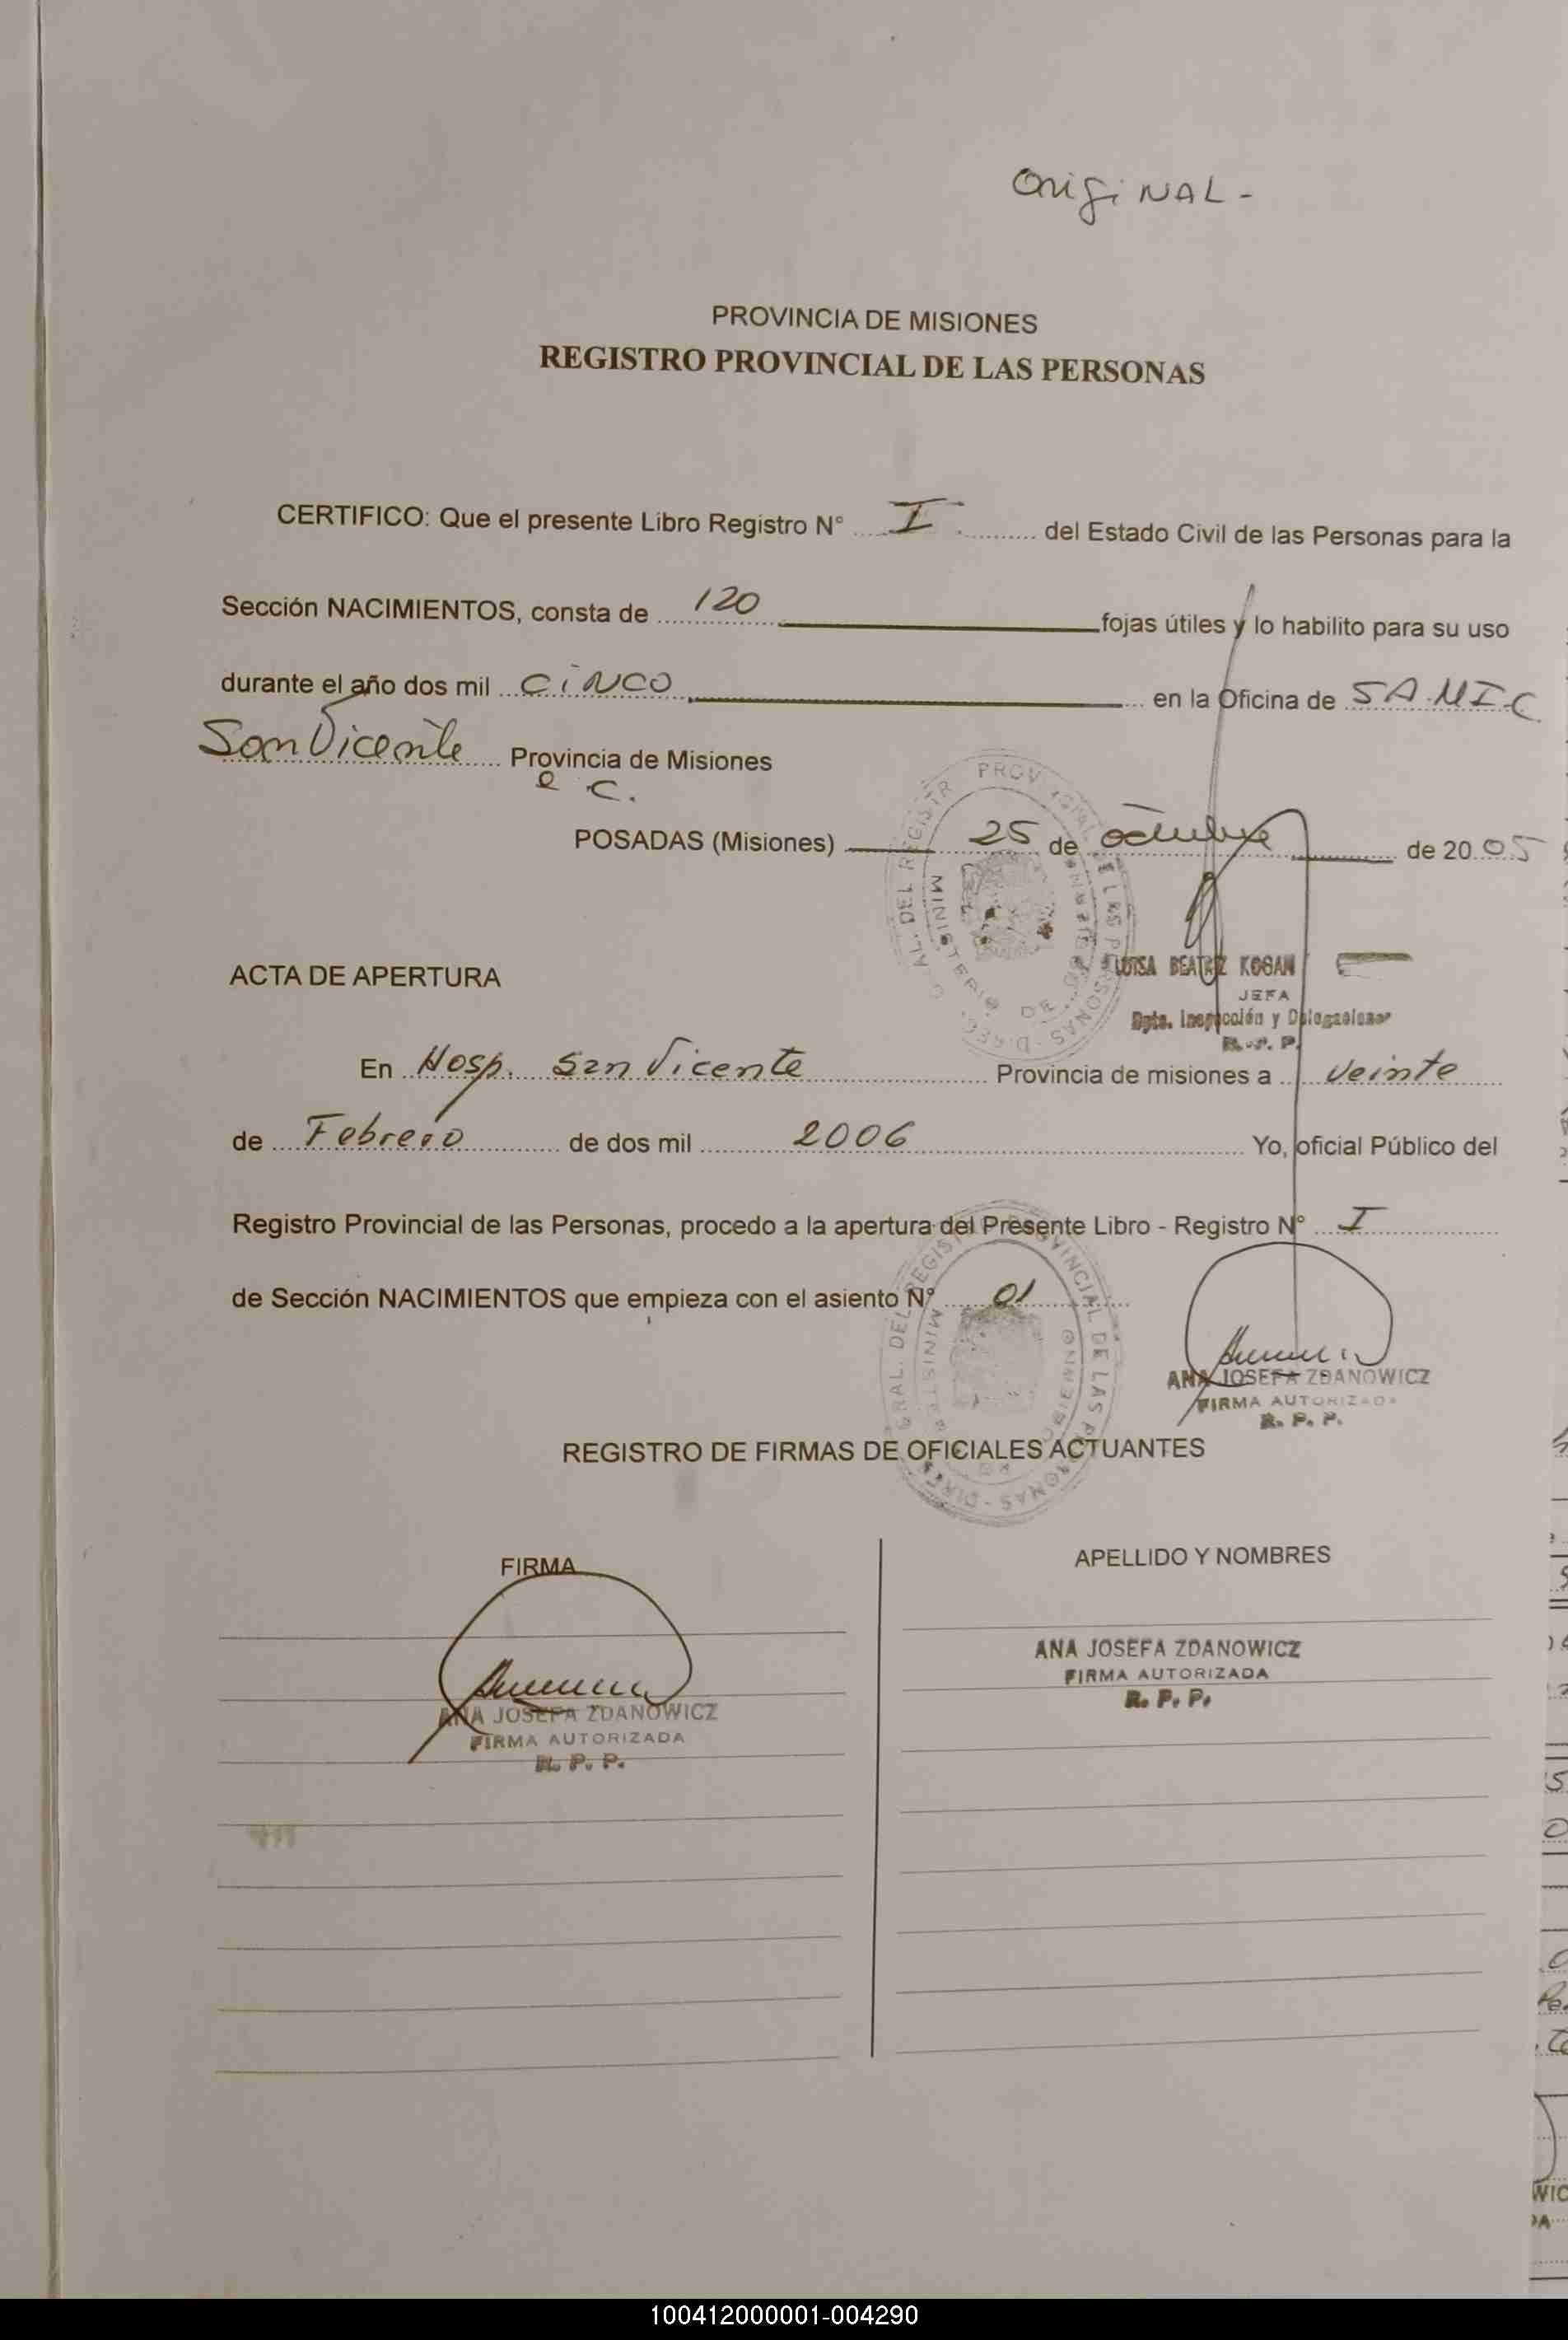 Original -
PROVINCIA DE MISIONES
REGISTRO PROVINCIAL DE LAS PERSONAS
CERTIFICO: Que el presente Libro Registro N° I del Estado Civil de las Personas para la
Sección NACIMIENTOS, consta de 120 fojas útiles y lo habilito para su uso
durante el año dos mil CINCO en la Oficina de SAMIC
San Vicente Provincia de Misiones
e C.
POSADAS (Misiones) 25 de octubre de 2005
LUISA BEATRIZ KOGAN
JEFA
Dpto. Inspección y Delegaciones
R. P. P.
ACTA DE APERTURA
En Hosp. San Vicente Provincia de misiones a veinte
de Febrero de dos mil 2006 Yo, oficial Público del
Registro Provincial de las Personas, procedo a la apertura del Presente Libro - Registro N° I
de Sección NACIMIENTOS que empieza con el asiento N° 01
ANA JOSEFA ZDANOWICZ
FIRMA AUTORIZADA
R. P. P.
REGISTRO DE FIRMAS DE OFICIALES ACTUANTES
FIRMA
APELLIDO Y NOMBRES
ANA JOSEFA ZDANOWICZ
FIRMA AUTORIZADA
R. P. P.
ANA JOSEFA ZDANOWICZ
FIRMA AUTORIZADA
R. P. P.
100412000001-004290